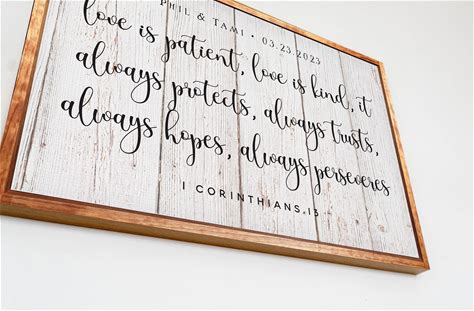 PHIL & TAMI • 03.23.2023
love is patient, love is kind, it
always protects, always trusts,
always hopes, always perseveres
1 CORINTHIANS 13